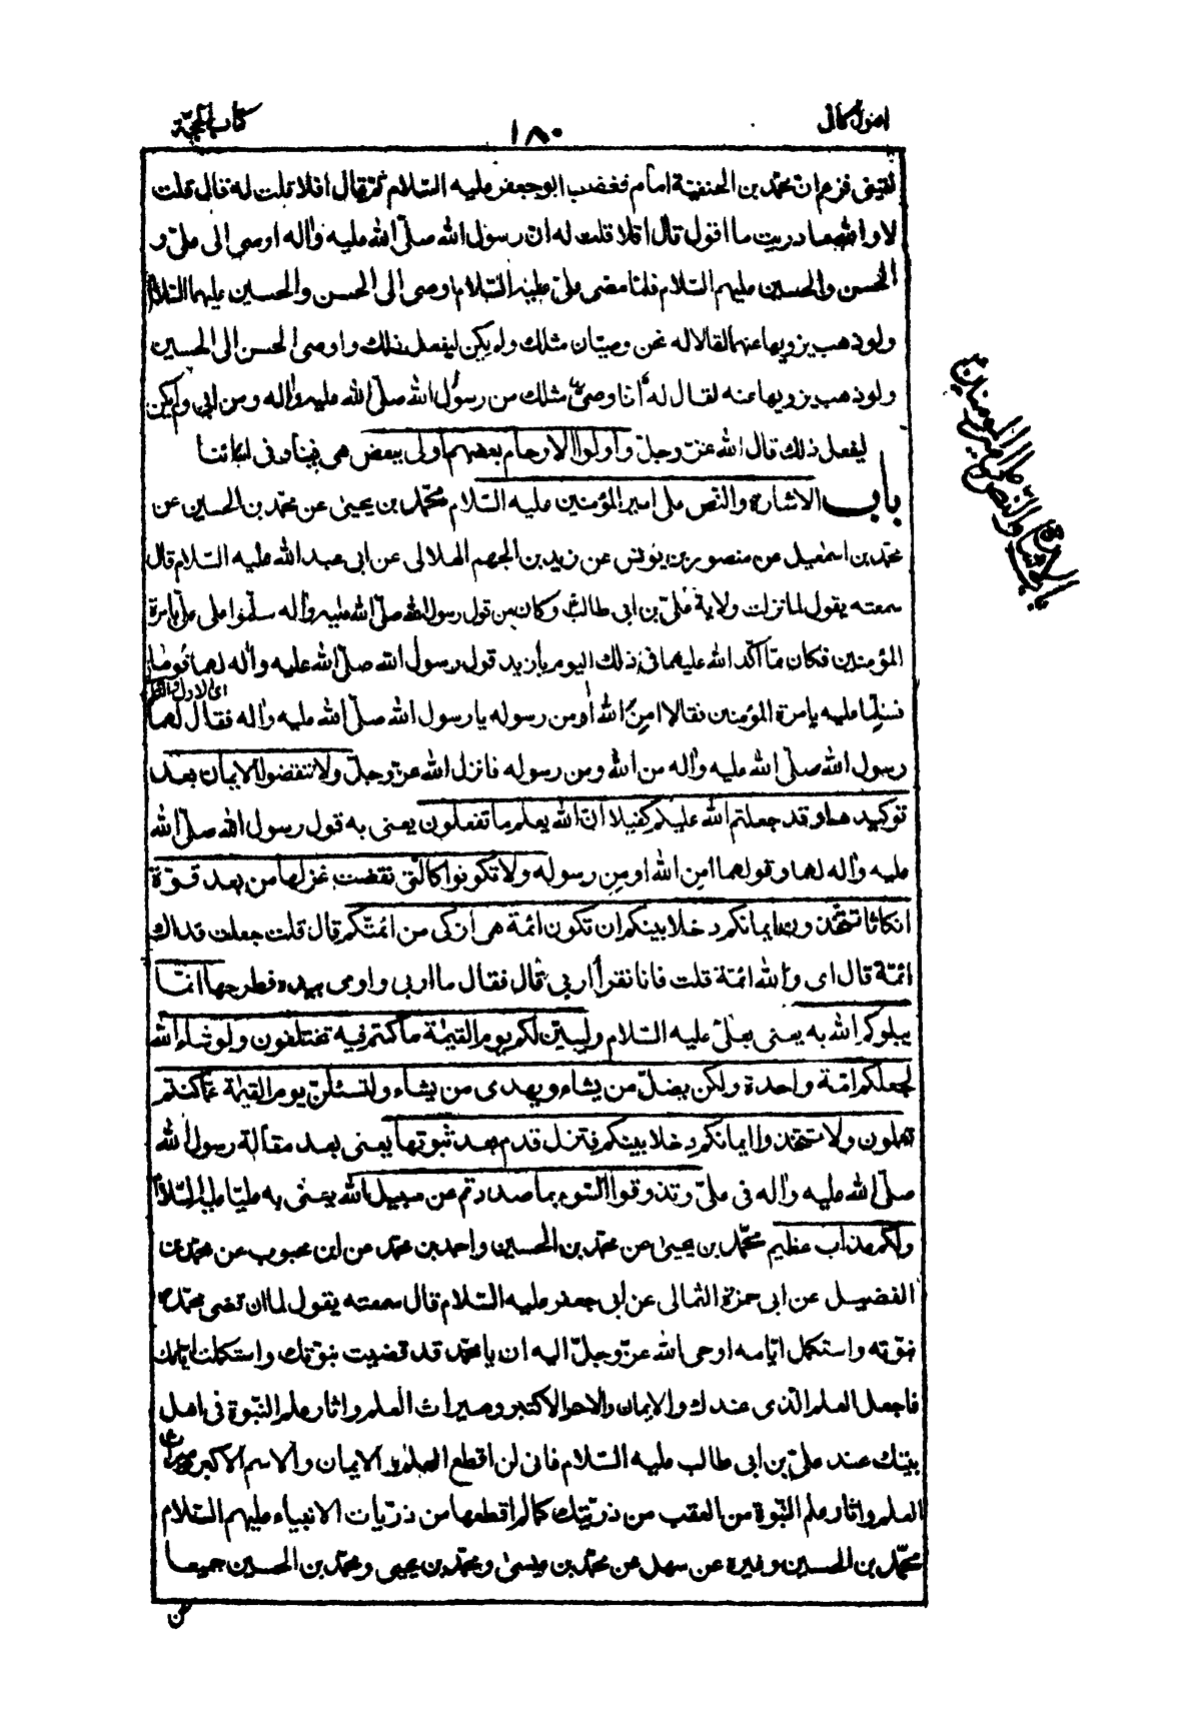 اصول كافى
١٨٠
كتاب الحجّة
لقينى فزعم ان محمّد بن الحنفيّة امام فغضب ابو جعفر عليه السّلام ثمّ قال افلا قلت له قال قلت
لا والله ما دريت ما اقول قال افلا قلت له انّ رسول الله صلّى الله عليه واله اوصى الى علىّ و
الحسن والحسين عليهم السّلام فلمّا مضى علىّ عليه السّلام اوصى الى الحسن والحسين عليهما السّلام
ولو ذهب يزويها عنهما لقالا له نحن وصيّان مثلك ولم يكن ليفعل ذلك واوصى الحسن الى الحسين
ولو ذهب يزويها عنه لقال له انا وصىّ مثلك من رسول الله صلّى الله عليه واله ومن ابى ولم يكن
ليفعل ذلك قال الله عزّ وجلّ واولوا الارحام بعضهم اولى ببعض هى فينا وفى ابنائنا
باب الاشارة والنّص على امير المؤمنين عليه السّلام محمّد بن يحيىٰ عن محمّد بن الحسين عن
محمّد بن اسمٰعيل عن منصور بن يونس عن زيد بن الجهم الهلالى عن ابى عبد الله عليه السّلام قال
سمعته يقول لما نزلت ولاية علىّ بن ابى طالب وكان من قول رسول الله صلّى الله عليه واله سلّموا على علىّ بامرة
المؤمنين فكان ممّا اكّد الله عليهما فى ذلك اليوم يا زيد قول رسول الله صلّى الله عليه واله لهما قوما
اى الاول والثانى
فسلّما عليه بامرة المؤمنين فقالا امن الله او من رسوله يا رسول الله صلّى الله عليه واله فقال لهما
رسول الله صلّى الله عليه واله من الله ومن رسوله فانزل الله عزّ وجلّ ولا تنقضوا الايمان بعد
توكيدها وقد جعلتم الله عليكم كفيلا انّ الله يعلم ما تفعلون يعنى به قول رسول الله صلّى الله
عليه واله لهما وقولهما امن الله او من رسوله ولا تكونوا كالّتى نقضت غزلها من بعد قوّة
انكاثا تتّخذون ايمانكم دخلا بينكم ان تكون ائمة هى أزكى من ائمّتكم قال قلت جعلت فداك
ائمّة قال اى والله ائمّة قلت فانا نقرأ اربى قال فقال ما اربى واومى بيده فطرحها انّما
يبلوكم الله به يعنى بعلىّ عليه السّلام وليبيّننّ لكم يوم القيمٰة ما كنتم فيه تختلفون ولو شاء الله
لجعلكم امّة واحدة ولكن يضلّ من يشاء ويهدى من يشاء ولتسئلنّ يوم القيمٰة عمّا كنتم
تعملون ولا تتّخذوا ايمانكم دخلا بينكم فتزل قدم بعد ثبوتها يعنى بعد مقالة رسول الله
صلّى الله عليه واله فى علىّ وتذوقوا السّوء بما صددتم عن سبيل الله يعنى به عليّا عليه السّلام
ولكم عذاب عظيم محمّد بن يحيىٰ عن محمّد بن الحسين واحمد بن محمّد عن ابن محبوب عن محمّد بن
الفضيل عن ابى حمزة الثمالى عن ابى جعفر عليه السّلام قال سمعته يقول لما ان قضى محمّد
نبوّته واستكمل ايّامه اوحى الله عزّ وجلّ اليه ان يا محمّد قد قضيت نبوّتك واستكملت ايّامك
فاجعل العلم الّذى عندك والايمان والاسم الاكبر وميراث العلم واثار علم النّبوة فى اهل
بيتك عند علىّ بن ابى طالب عليه السّلام فانى لن اقطع العلم والايمان والاسم الاكبر وميراث
العلم واثار علم النّبوة من العقب من ذرّيّتك كما لم اقطعها من ذرّيات الانبياء عليهم السّلام
محمّد بن الحسين وغيره عن سهل عن محمّد بن عيسىٰ ومحمّد بن يحيى ومحمّد بن الحسين جميعا
عن
باب الاشارة والنّص على امير المؤمنين